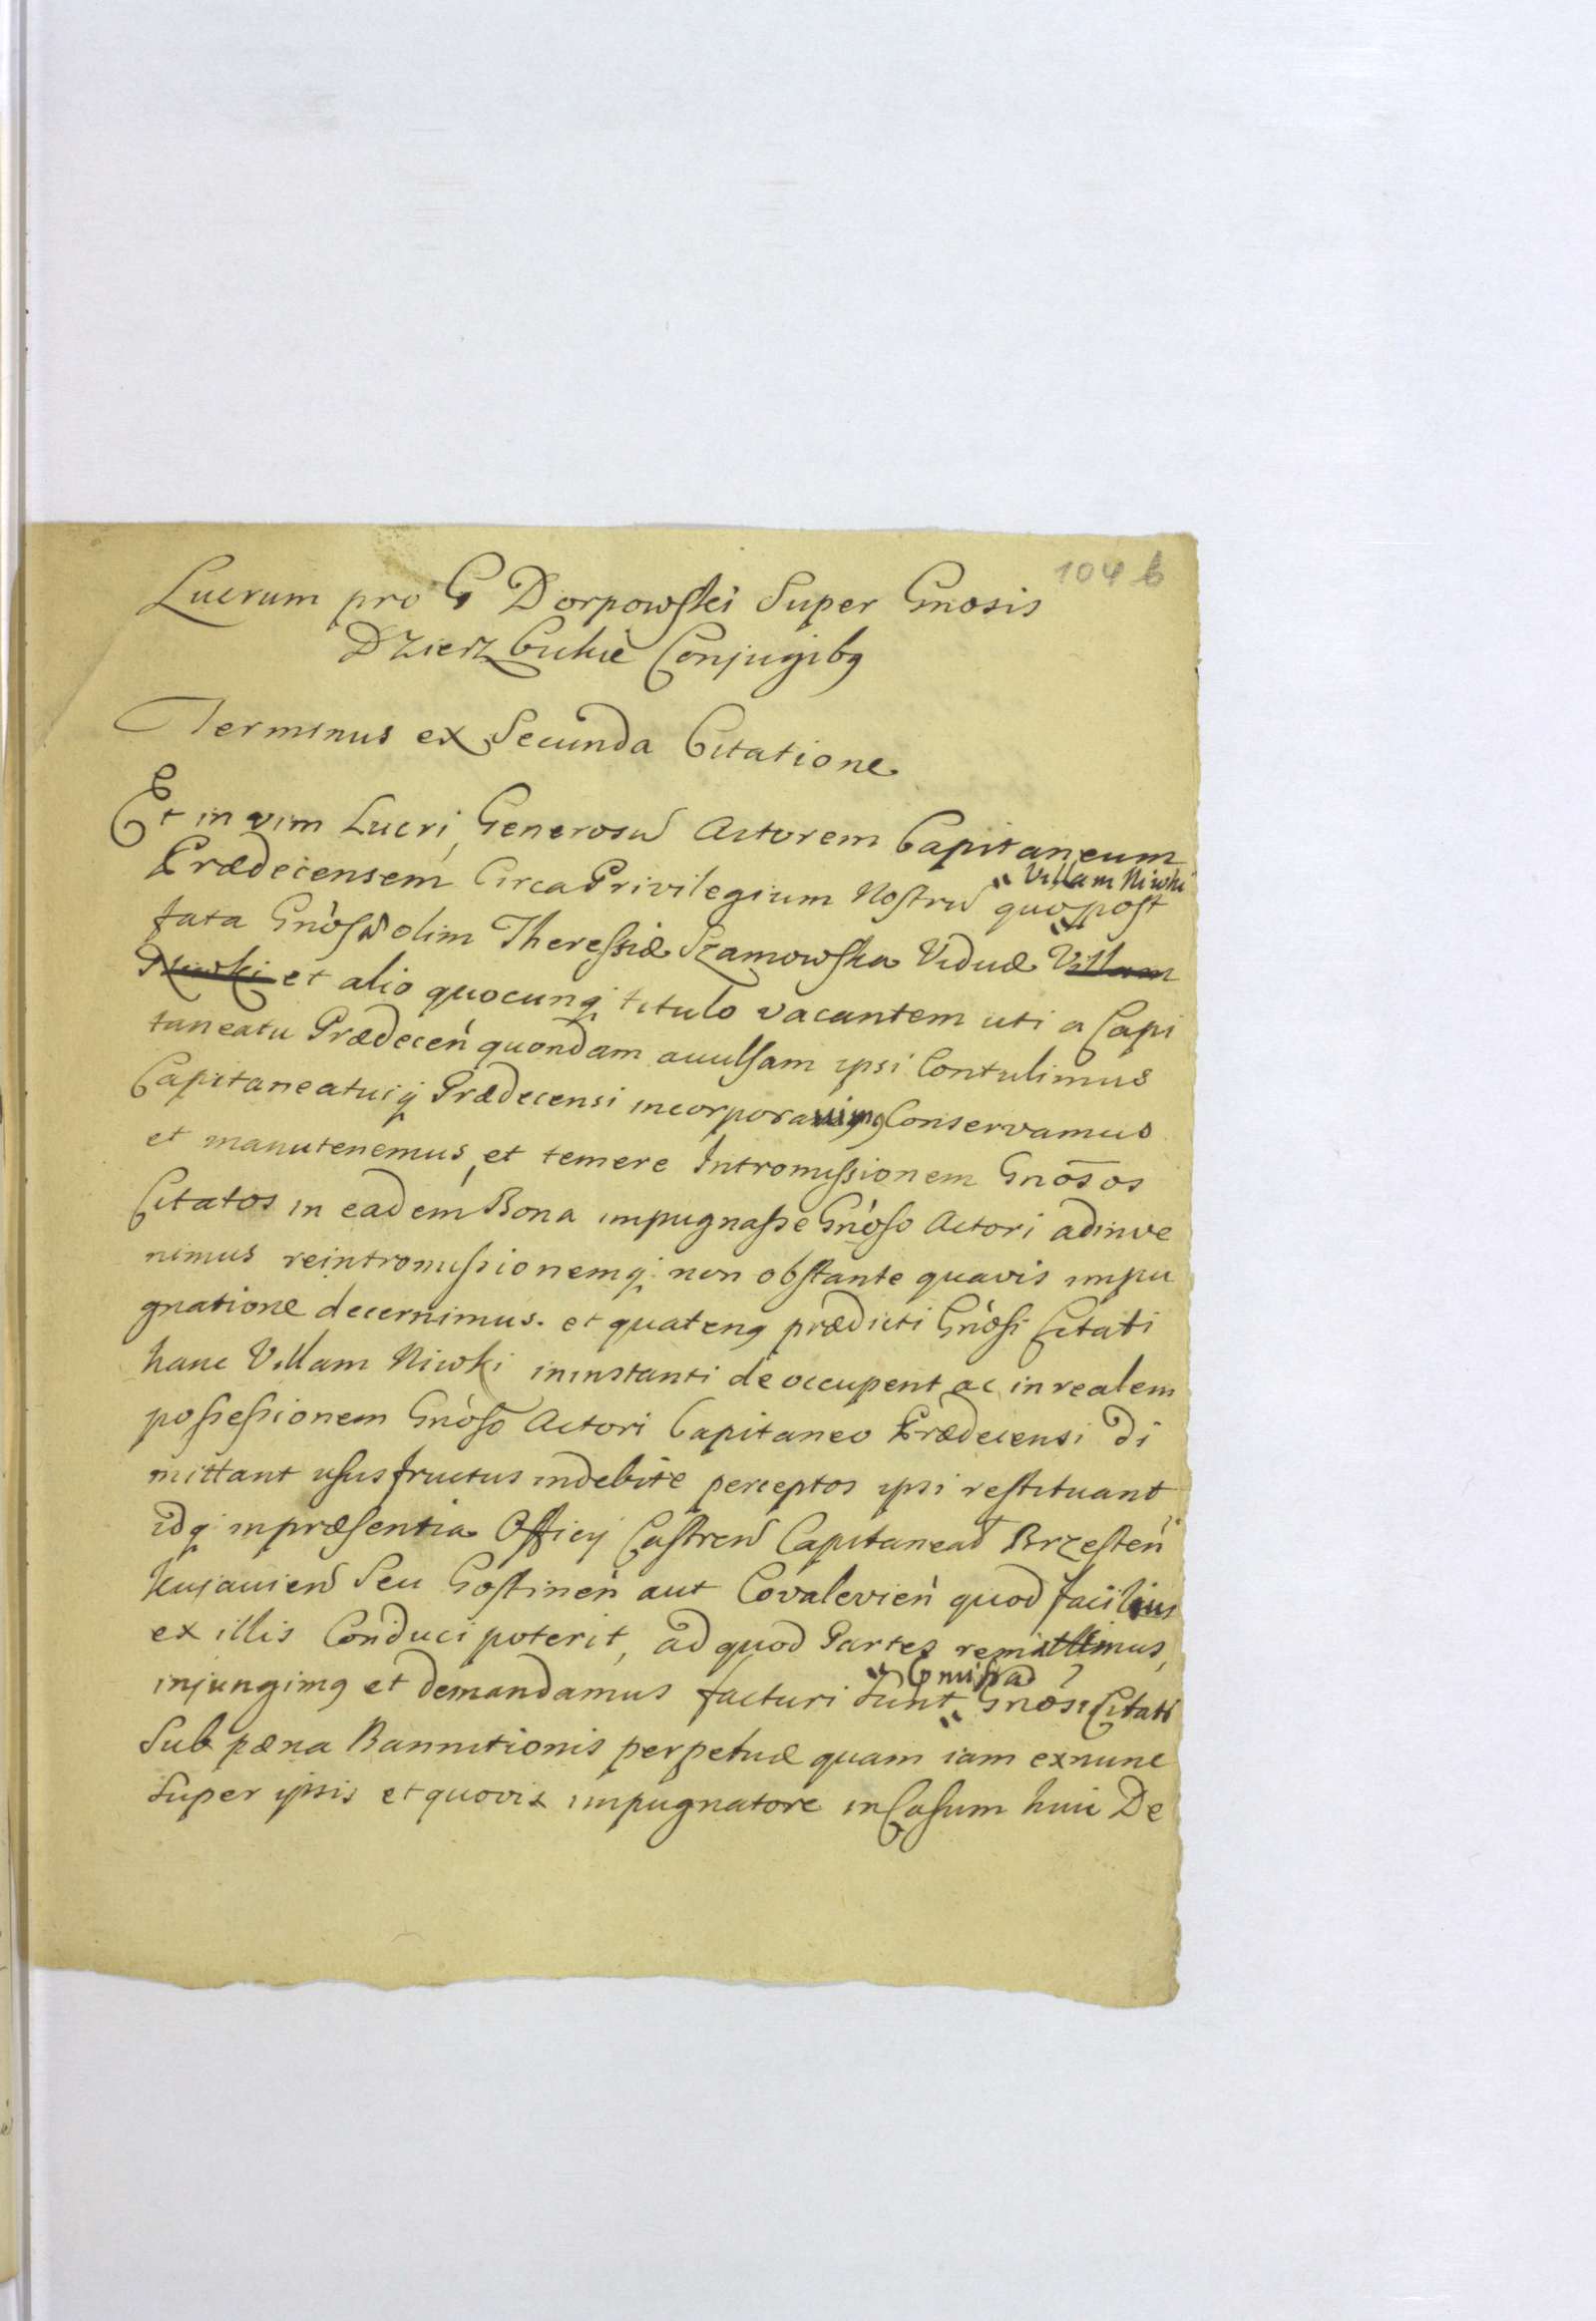 104 b
Lucrum pro G Dorpowski Super Gnosis
Dzierzbickie Conjugibꝯ
Terminus ex Secunda Citatione
Et in vim Lucri, Generosū Actorem Capitaneum
Prædecensem Circa Privilegium Nostrū quo Villam Niwki post
fata Gnosæ olim Theressiæ Szamowska Viduæ Villam
Niwki et alio quocunq; titulo vacantem uti a Capi
taneatu Prædecen quondam avulsam ipsi Contulimus
Capitaneatuiq; Prædecensi incorporavimꝯ Conservamus
et manutenemus, et temere Intromissionem Gnōsos
Citatos in eadem Bona impugnasse Gnoso Actori adinve
nimus reintromissionemq; non obstante quavis impu
gnatione decernimus. et quatenꝯ prædicti Gnosi Citati
hanc Villam Niwki ininstanti deoccupent ac in realem
possessionem Gnoso Actori Capitaneo Prædecensi di
mittant ususfructus indebite perceptos ipsi restituant
idq; inpræsentia Officij Castren Capitaneat Brzesten
Kujavien Seu Gostinen aut Covalevien quod facilius
ex illis Conduci poterit, ad quod Partes remittimus,
injungimꝯ et demandamus facturi sunt Gnosi Citati
Sub pæna Bannitionis perpetuæ quam iam exnunc
super ipsis et quovis impugnatore in Casum huic De